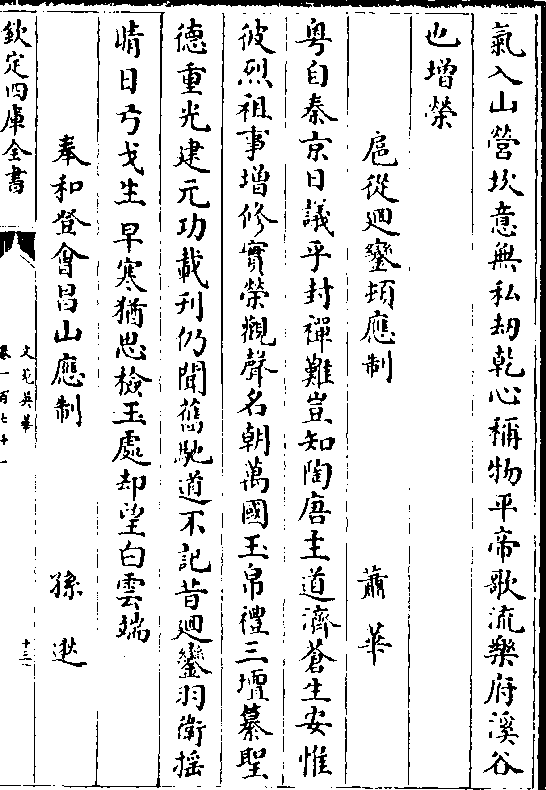 氣入山營坎意無私刼乾心稱物平帝歌流樂府溪谷
也增榮
扈從迴鑾頓應制
蕭華
粤自秦京日議乎封禪難豈知陶唐主道濟蒼生安惟
彼烈祖事增修實榮觀聲名朝萬國玉帛禮三壇纂聖
德重光建元功載刋仍聞舊馳道不記昔迴鑾羽衛揺
晴日弓戈生早寒猶思檢玉處却望白雲端
奉和登會昌山應制
孫逖
欽定四庫全書
文苑英華
卷一百七十一
十三